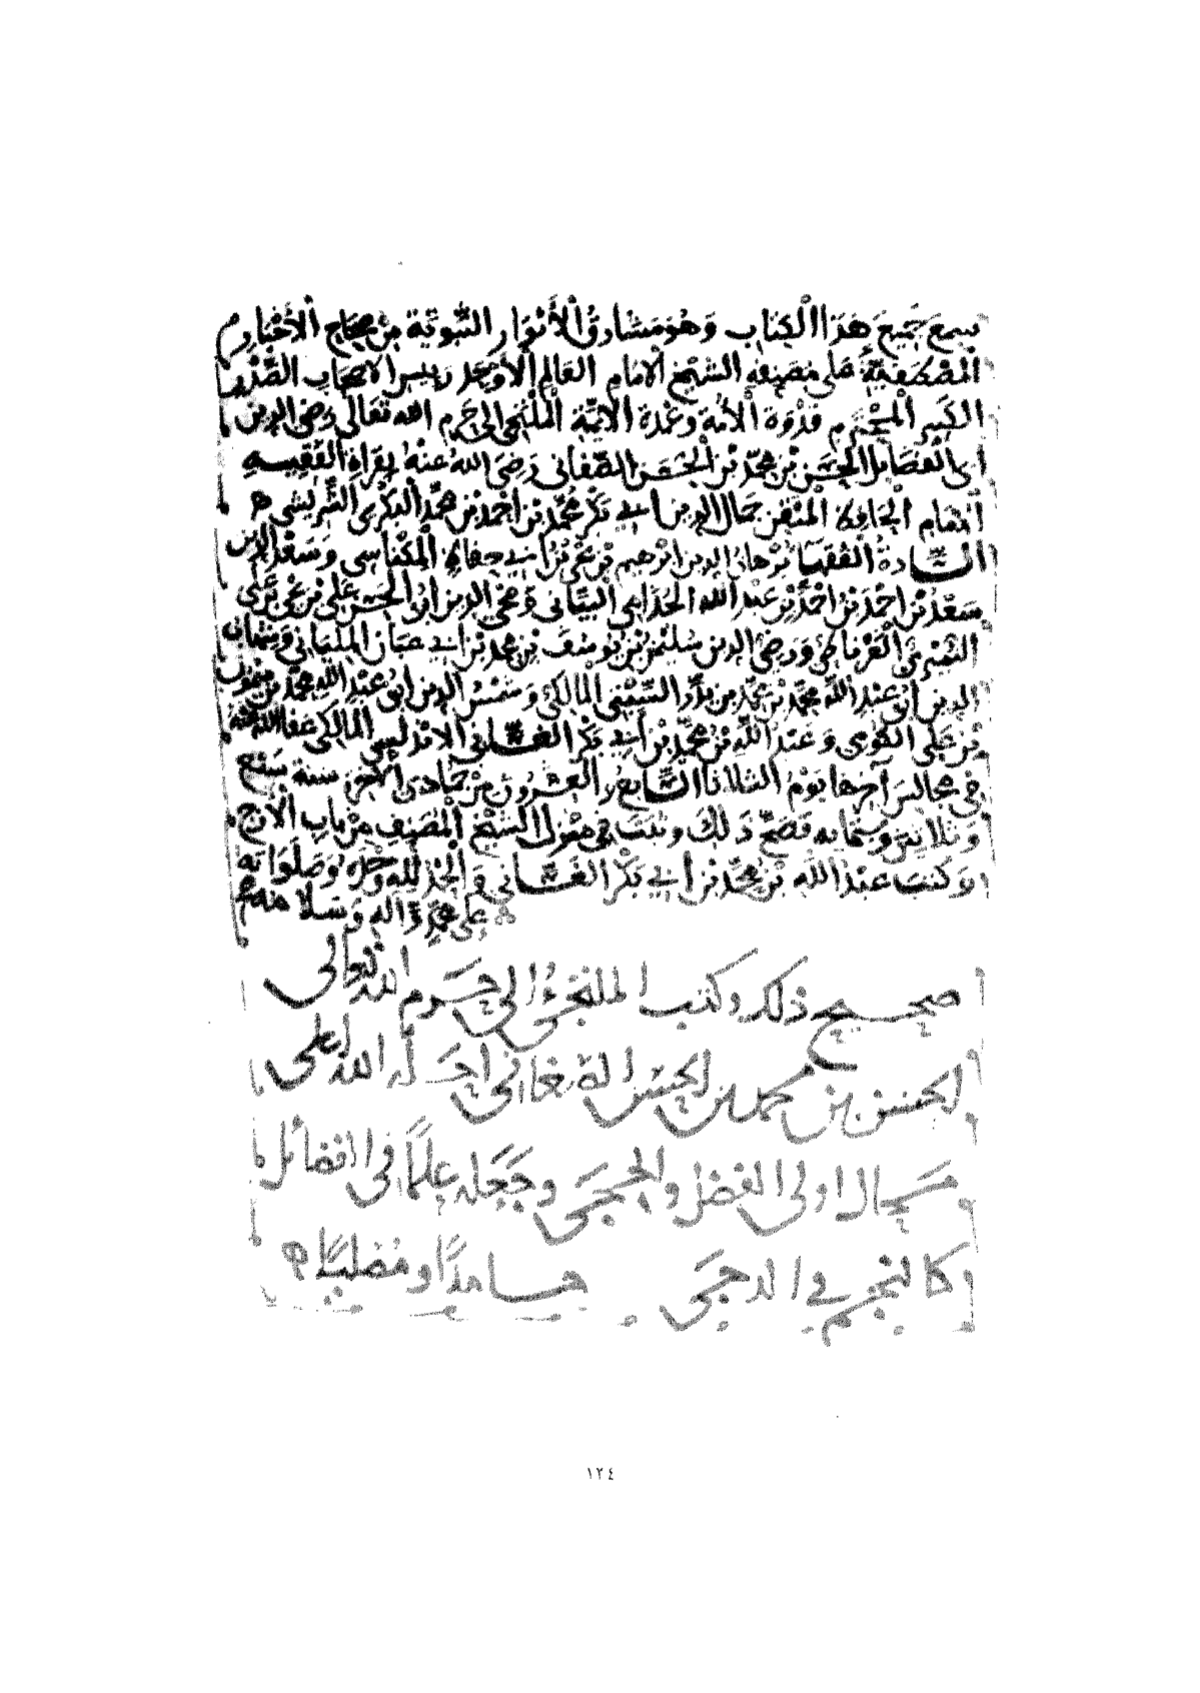 سمع جميع هذا الكتاب وهو مشارق الأنوار النبوية من صحاح الأخبار
المصطفوية على مصنفه الشيخ الإمام العالم الأوحد رئيس الاصحاب
الكبير المحترم قدوة الأمة وعمدة الائمة الملتجئ الى حرم الله تعالى رضي الدين
ابي الفضائل الحسن بن محمد بن الحسن الصغاني رضي الله عنه بقراءة الفقيه
الإمام المتقن جمال الدين أبي بكر محمد بن احمد بن محمد البكري الشريشي
السادة الفقهاء برهان الدين ابرهيم بن يحيى بن أبي حفاظ المكناسي وسعد الدين
سعد بن احمد بن احمد بن عبد الله الجذامي البياني ومحيي الدين ابو الحسن علي بن
النميري الغرناطي ورضي الدين سليمن بن يوسف بن محمد بن أبي الملياني
الدين ابو عبد الله محمد بن محمد بن المالكي وشمس الدين ابو عبد الله محمد بن
بن علي وعبد الله بن محمد بن أبي بكر الغساني الاندلسي المالكي عفا الله عنه
في مجالس آخرها يوم الثلاثا السابع والعشرون من جمادى الآخر سنة سبع
وثلاثين وستمايه فصح ذلك وثبت في منزل الشيخ المصنف من باب الأزج
وكتب عبد الله بن محمد بن أبي بكر الغساني والحمد لله وحده وصلواته
على محمد وآله وسلامه
صحيح ذلك وكتب الملتجئ الى حرم الله تعالى
الحسن بن محمد بن الحسن الصغاني احله الله اعلى
محال اولى الفضل والحجى وجعله علما في الافضائل
كالنجم في الدجى